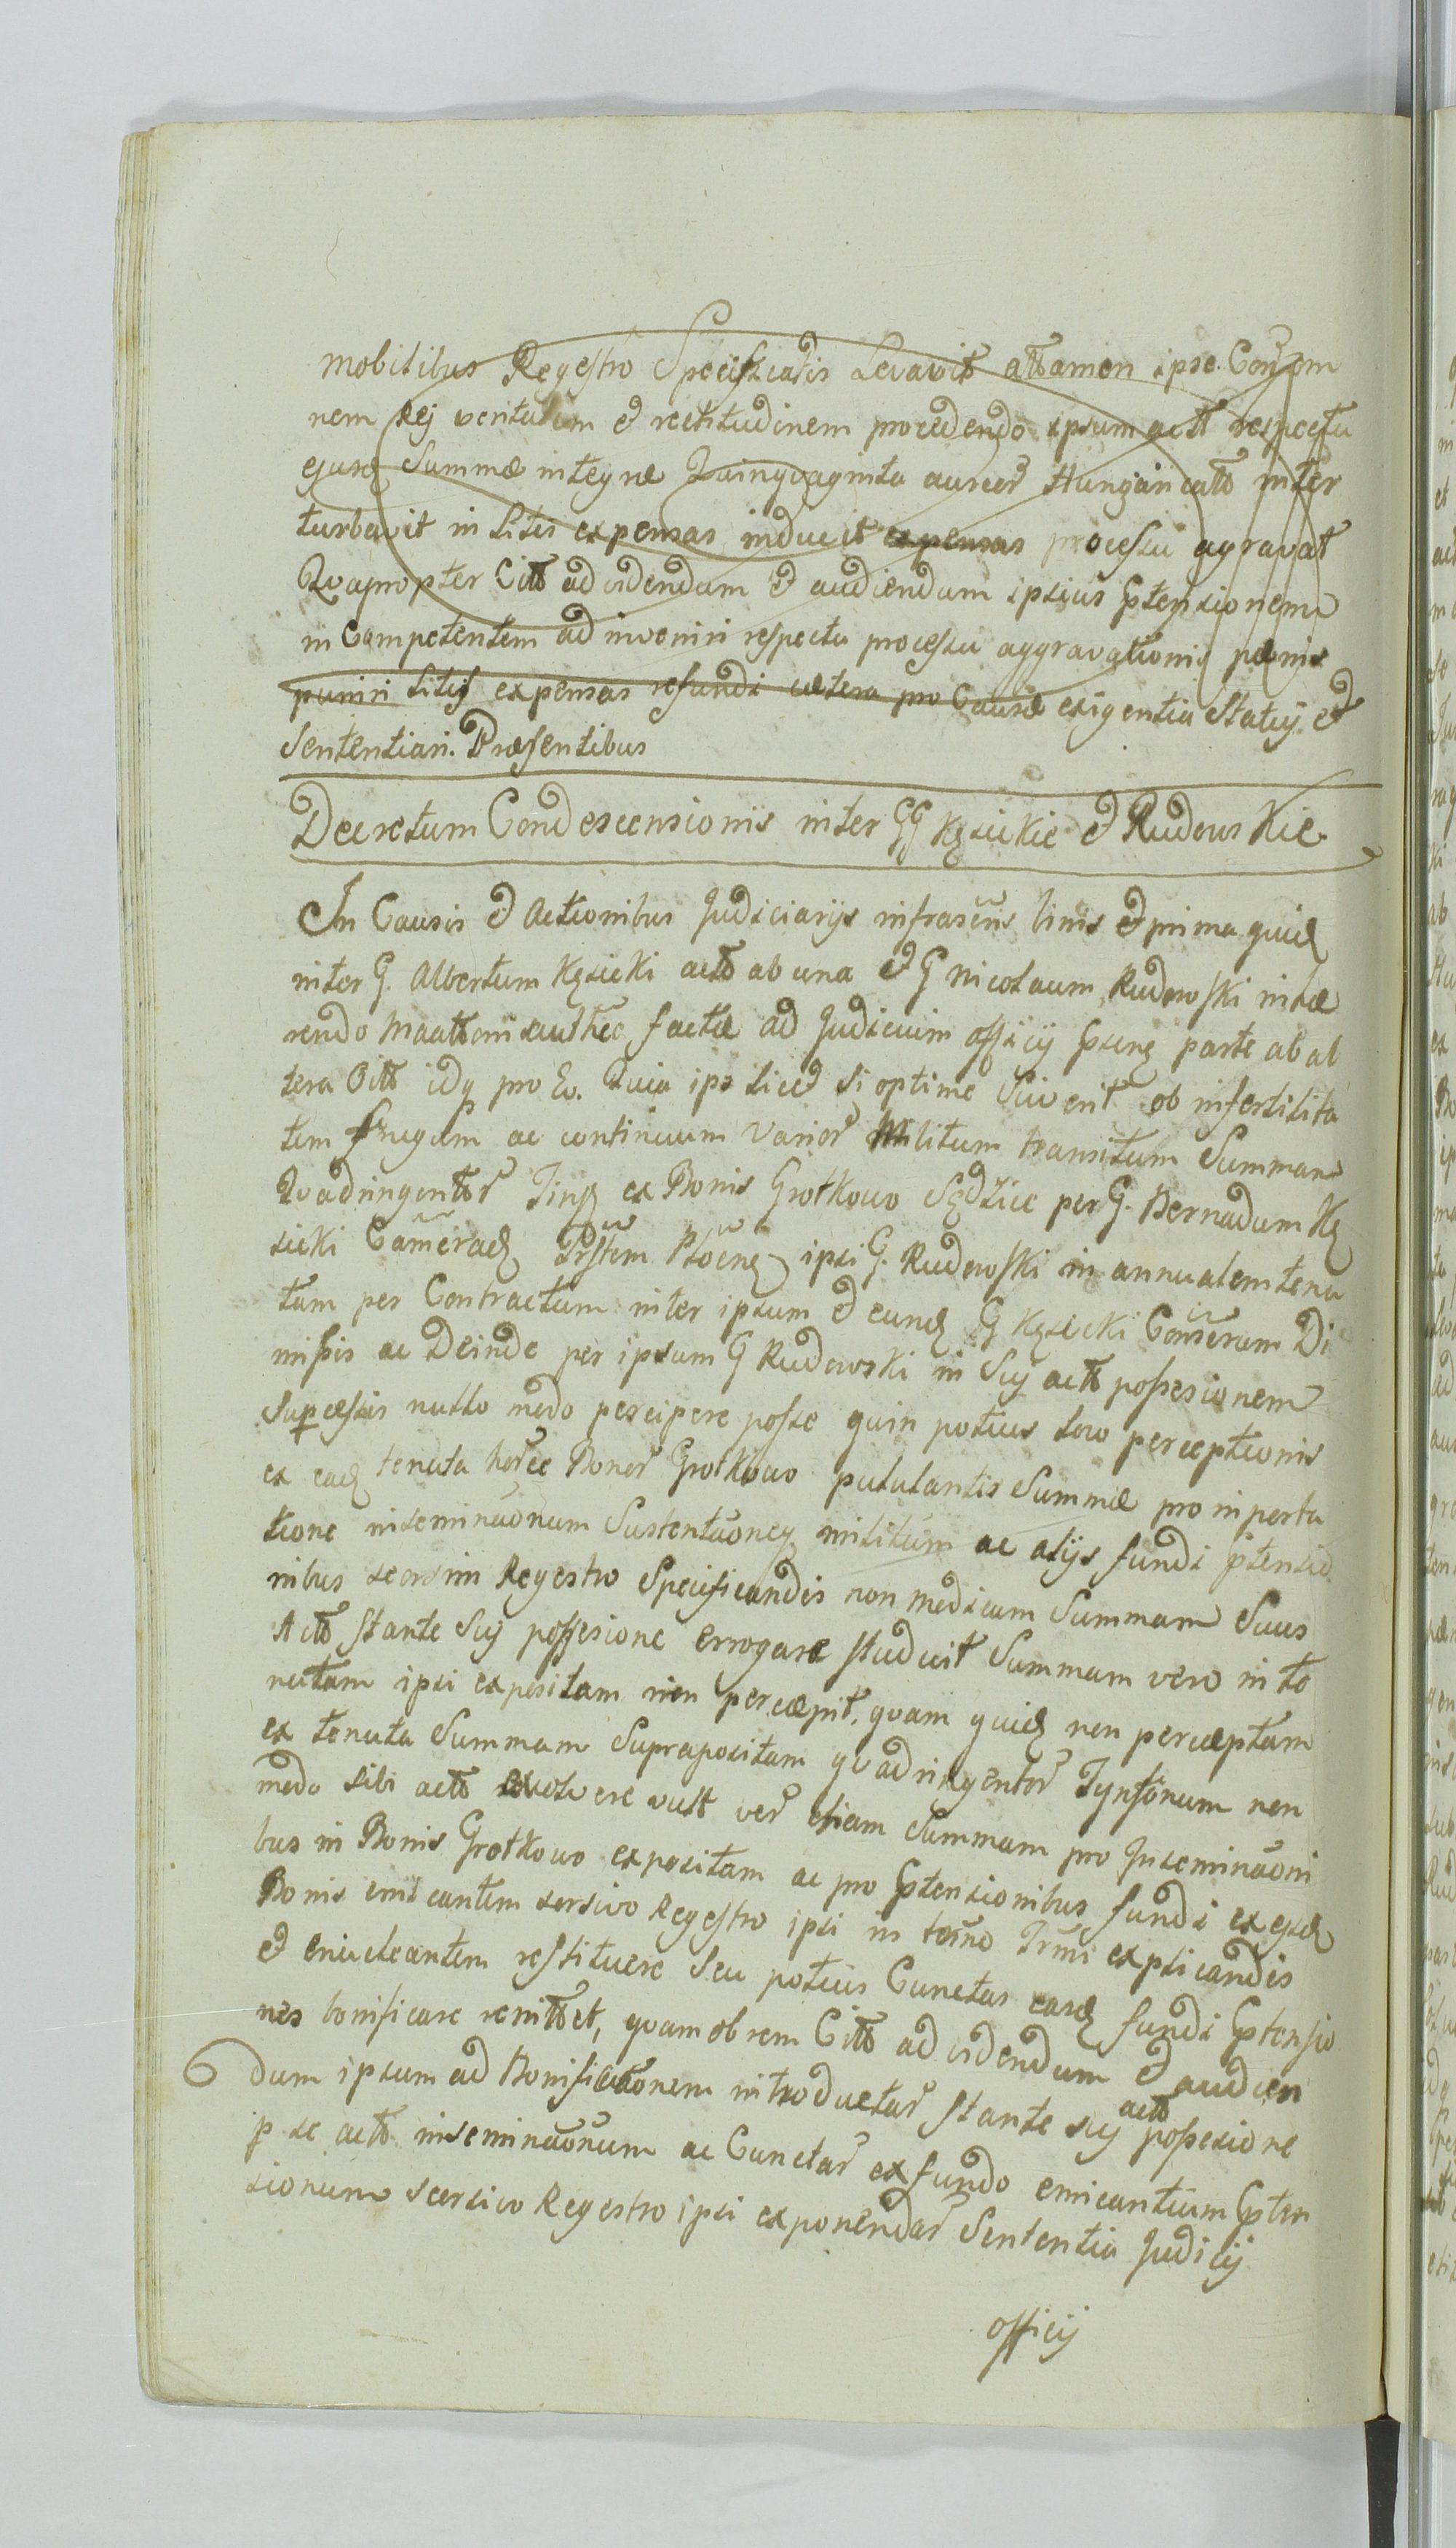 mobilibus Regestro Specificatis Levavit attamen ipse Con̄om
nem Rej veritatem et rectitudinem procedendo ipsum actt respectu
ejusq Summæ integræ Quinqvaginta aureor Hungaricatt inter
turbavit in Litis expensas inducit expensas processu agravat
Qvapropter Citt ad videndum et audiendum ipsius Ptensionem
in Competentem ad inveniri respectu processu aggravationis pænis
puniri Litis expensas refundi cætera pro Causæ exigentia Statuj et
Sententiari. Præsentibus
Decretum Condescensionis inter GG Kęsickie et Rudowskie
In Causis et Actionibus Judiciarijs infrascris binis et prima quid
inter G. Albertum Kęsicki actt ab una et G Nicolaum Rudowski inhæ
rendo factæ ad Judicium officij parte ab al
tera Citt idq pro Eo. Quia ips licet si optime Sciverit ob infertilita
tem frugum ac continuum varior Militum transitum Summam
Qvadringentor Tinf ex Bonis Grotkowo Sędzice per G. Bernadum Kę
sicki ipsi G. Rudowski in annualem tenu
tam per Contractum inter ipsum et eund G Kęsicki Di
missis ac Deinde per ipsum G Rudowski in Suj actt possesionem
nullo modo percipere posse quin potius loco perceptionis
ex ead tenuta horce Bonor Grotkowo pululantis Summæ pro inporta
tione inseminaonum Sustentaoneq militum ac alijs fundi ptensio
nibus seorsim Regestro Specificandis non modicam Summam Suus
Actt Stante Suj possesione errogare studuit Summam vero in te
nutam ipsi expositam non percæpit, qvam quid non percæptam
ex tenuta Summam Supraposita qvadringentor Tynfonum non
modo sibi actt exolvere vult ver etiam Summam pro Inseminaoni
bus in Bonis Grotkowo expositam ac pro Ptensionibus fundi ex ejsd
Bonis emicantem sersivo Regestro ipsi in termo Trmi explicandis
et enucleantem restituere Seu potius Cunctas easd fundi Ptensio
nes bonificare renittet, qvamobrem Citt ad videndum et audien
dum ipsum ad Bonificationem introductar Stante suj actt possesione
p se actt inseminaonum ac Cunctar ex fundo emicantium Pten
sionum scersivo Regestro ipsi exponendar Sententia Judicij
officij